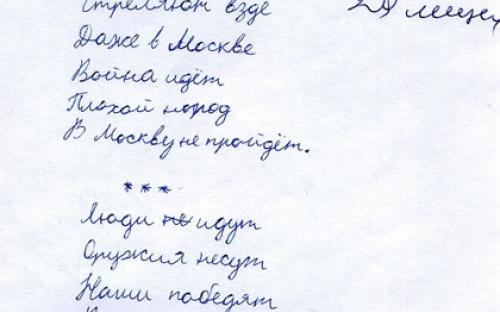 Стреляют везде
Даже в Москве
Война идёт
Плохой народ
В Москву не пройдёт.
***
Люди не идут
Оружия несут
Наши победят